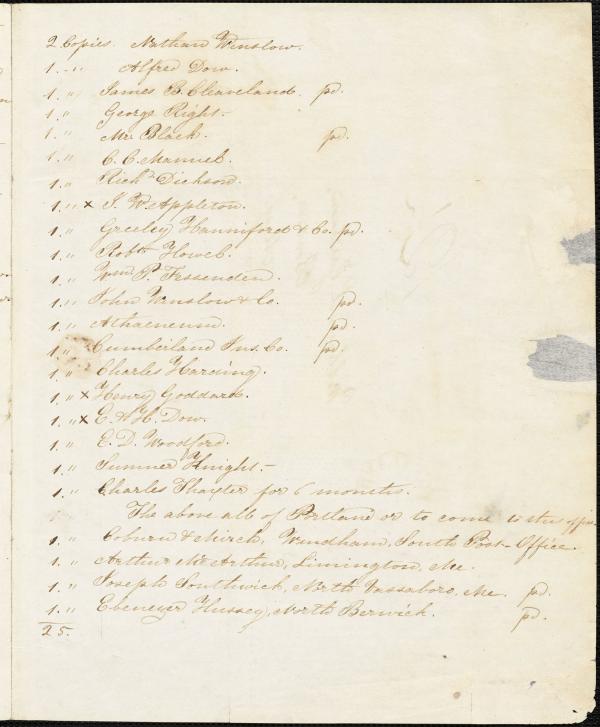 2 Copies. Nathan Winslow.
1. " Alfred Dow.
1. " James B. Cleaveland. pd.
1. " George Right.-
1. " Mr. Black. pd.
1. " C. C. Mannel.
1. " Richd. Dickson.
1. " x J. W. Appleton.
1. " Greeley Hanniford & Co. pd.
1. " Robt. Howel.
1. " Wm. P. Fessenden.
1. " John Winslow & Co. pd.
1. " Athaeneum. pd.
1. " Cumberland Ins. Co. pd.
1. " Charles Harding.
1. " x Henry Goddard.
1. " x E. & H. Dow.
1. " E. D. Woodford.
1. " Sumner Knight.-
1. " Charles Thaxter for 6 months.
The above all of Portland or to come to the offic
1. " Coburn & Mirch, Windham, South Post-Office.
1. " Arthur McArthur, Limington, Me.
1. " Joseph Southwick, North Vassaboro, Me. pd.
1. " Ebenezer Hussey, North Berwick. pd.
25.